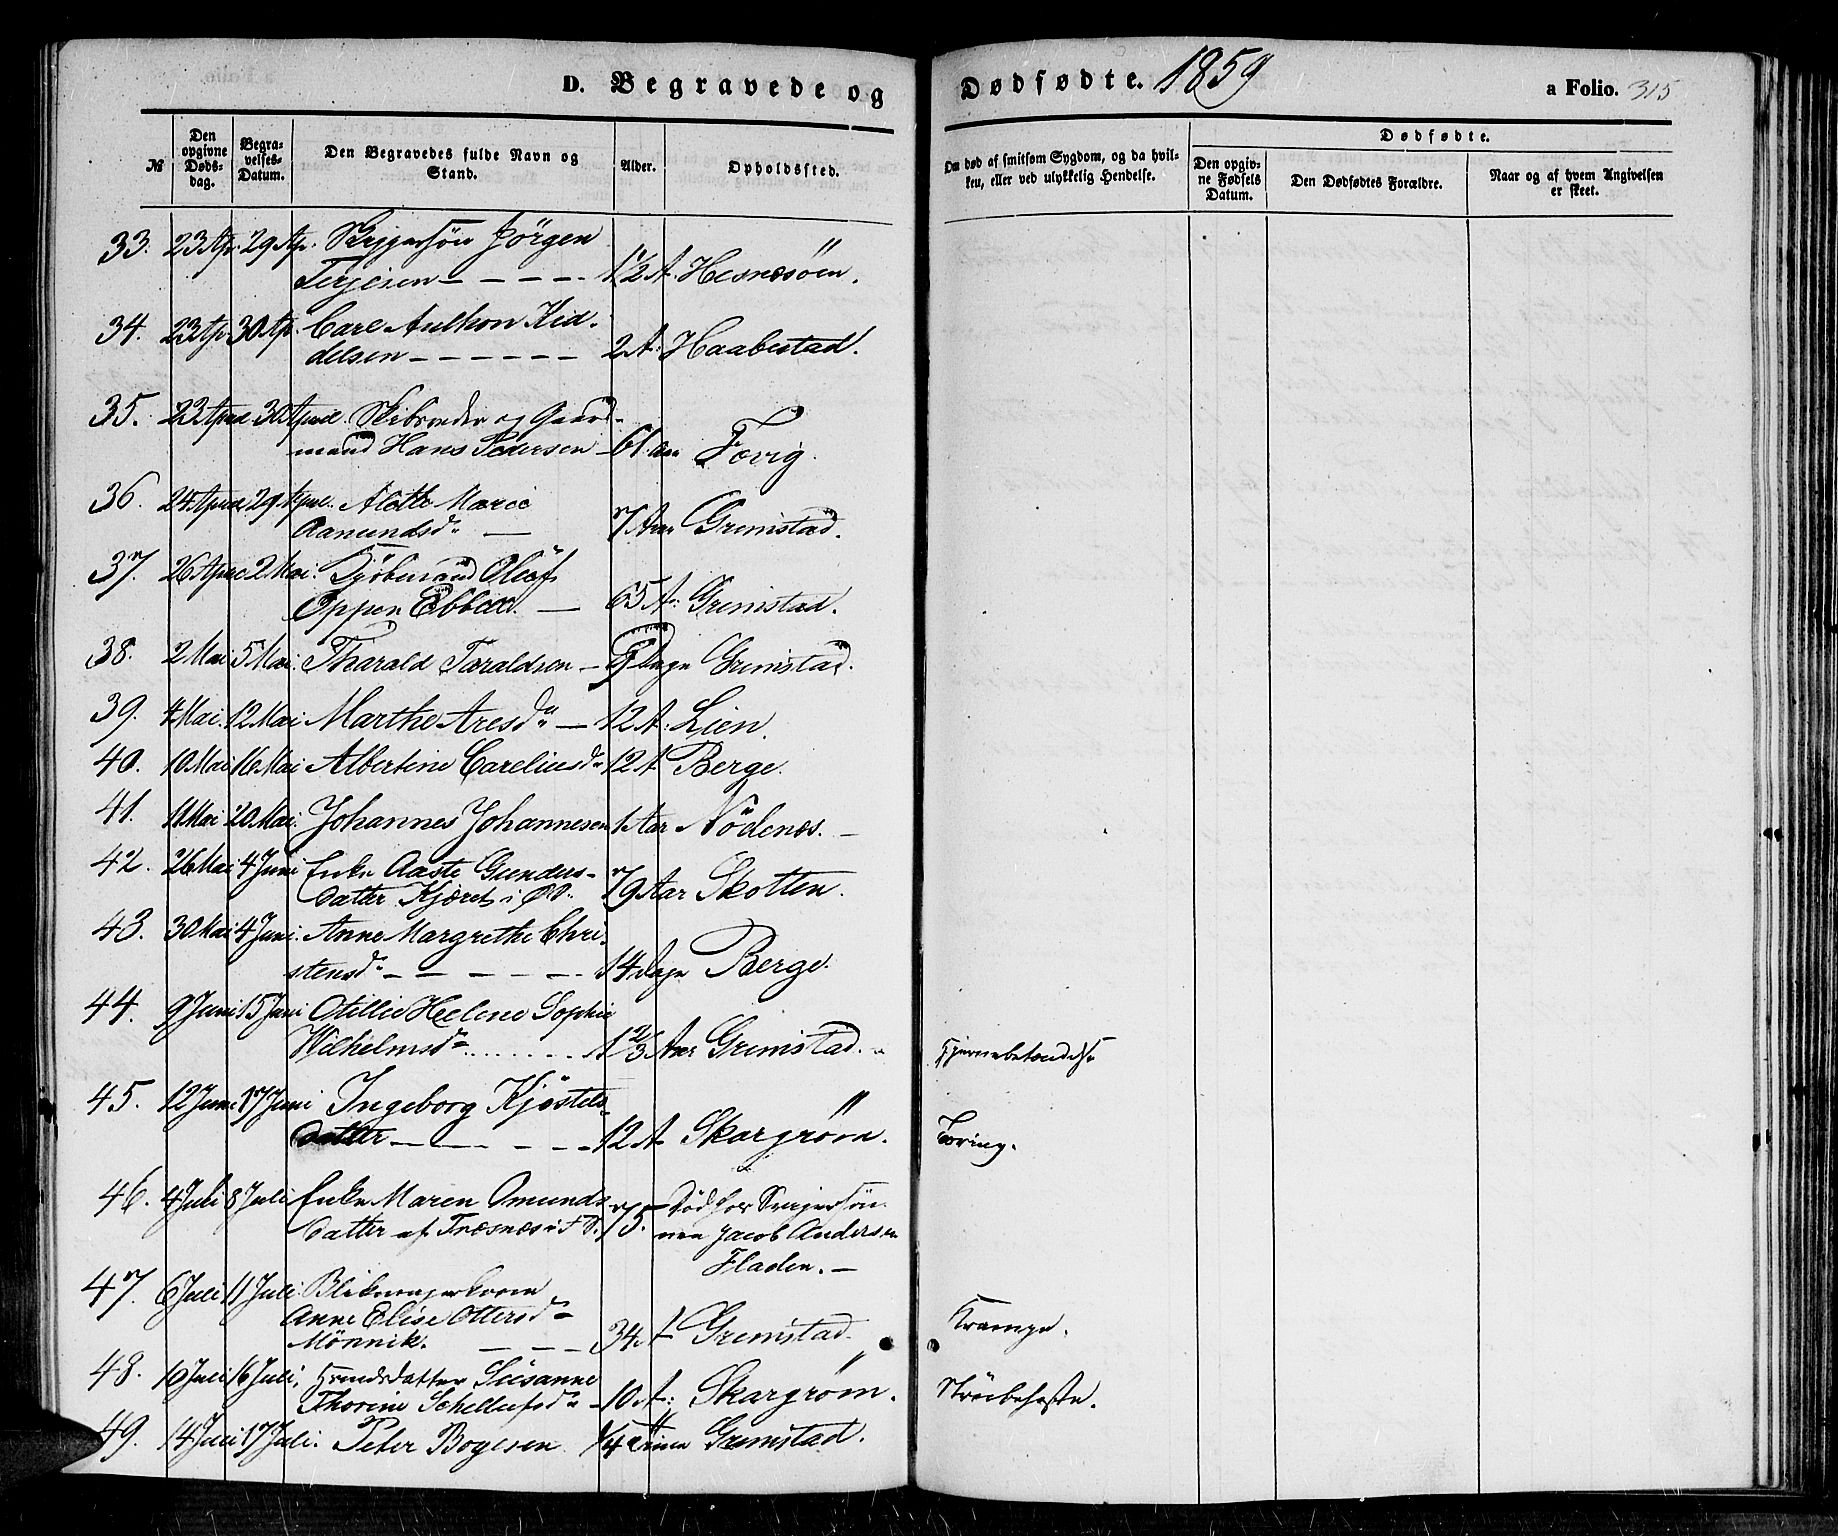 D. Begravede og Dødfødte. 1859
a Folio. 315
№
Den opgivne Døds-dag.
Begra-velses-Datum.
Den Begravedes fulde Navn og Stand.
Alder.
Opholdssted.
Om død af smitsom Sygdom, og da hvil-ken, eller ved ulykkelig Hendelse.
Dødfødte.
Den opgiv-ne Fødsels Datum.
Den Dødfødtes Forældre.
Naar og af hvem Angivelsen er skeet.
33. 23 Ap. 29 Ap. Jörgen
Terjesen — — — — 1½ A. Hesnesöen.
34. 23 Ap. 30 Ap. Carl Anthon Kid-
delsen — — — — — — 2 A. Haabestad.
35. 23 April 30 April. Skibsreder og Gaard-
mand Hans Pedersen — 61 Aar Fevig.
36. 24 April 29 April. Alette Marie
Aamundsdr — 7 Aar Grimstad.
37. 26 April 2 Mai. Oluf
Eppen Ebbell. — 65 A. Grimstad.
38. 2 Mai 5 Mai. Tharald Taraldsen — 9 Dage Grimstad.
39. 4 Mai. 12 Mai Marthe Aresdr — 12 A. Lien.
40. 10 Mai 16 Mai Albertine Careliusdr 12 A Berge.
41. 11 Mai 20 Mai. Johannes Johannesen 1 Aar Nödenæs. —
42. 26 Mai 4 Juni Enke Aaste Gunders-
datter Kjæret i ØS. 79 Aar Skotten.
43. 30 Mai 4 Juni. Anne Margrethe Chri-
stensdr — — — — — 14 Dage Berge.
44. 9 Juni 15 Juni Otillie Helene Sophie
Wilhelmsdr ........ 1 2/3 Aar Grimstad. Hjernebetændelse
45. 12 Juni 17 Juni Ingeborg Kjöstels-
datter — — — — — 12 A Skargröm. Tæring.
46. 4 Juli 8 Juli Enke Maren Omunds
datter af Træsnes i FS. 75. Död hos Svigersön-
nen Jacob Andersen
Fladen. —
47. 6 Juli 11 Juli
Anne Elise Ottersdr
Mönnik. — — — 34 A Grimstad. Krampe.
48. 10 Juli 16 Juli. Susanne
Thorine Schellufsdr — 10 A: Skargröm. Strubehoste.
49. 14 Juli 17 Juli. Peter Bogesen ¼ Time Grimstad.